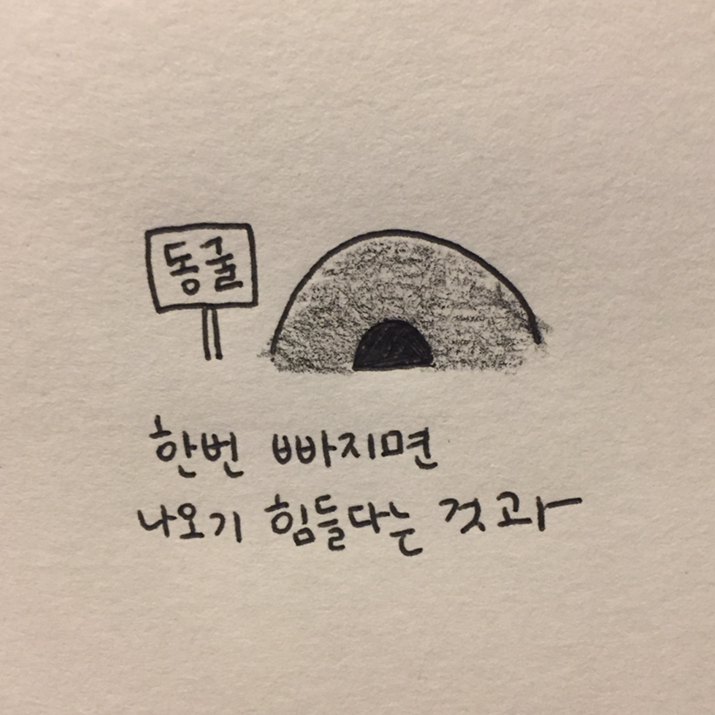 동굴
한번 빠지면
나오기 힘들다는 것과